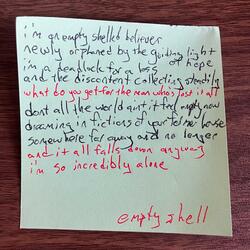 i'm an empty shelled believer
newly orphaned by the guiding light
i'm a headlock for a loss of hope
and the discontent collecting steadily
what do you get for the man who's lost it all
dont all the world aint it feel empty now
dreaming in fictions of your house
somewhere far away and no longer
and it all falls down anyway
i'm so incredibly alone
empty shell